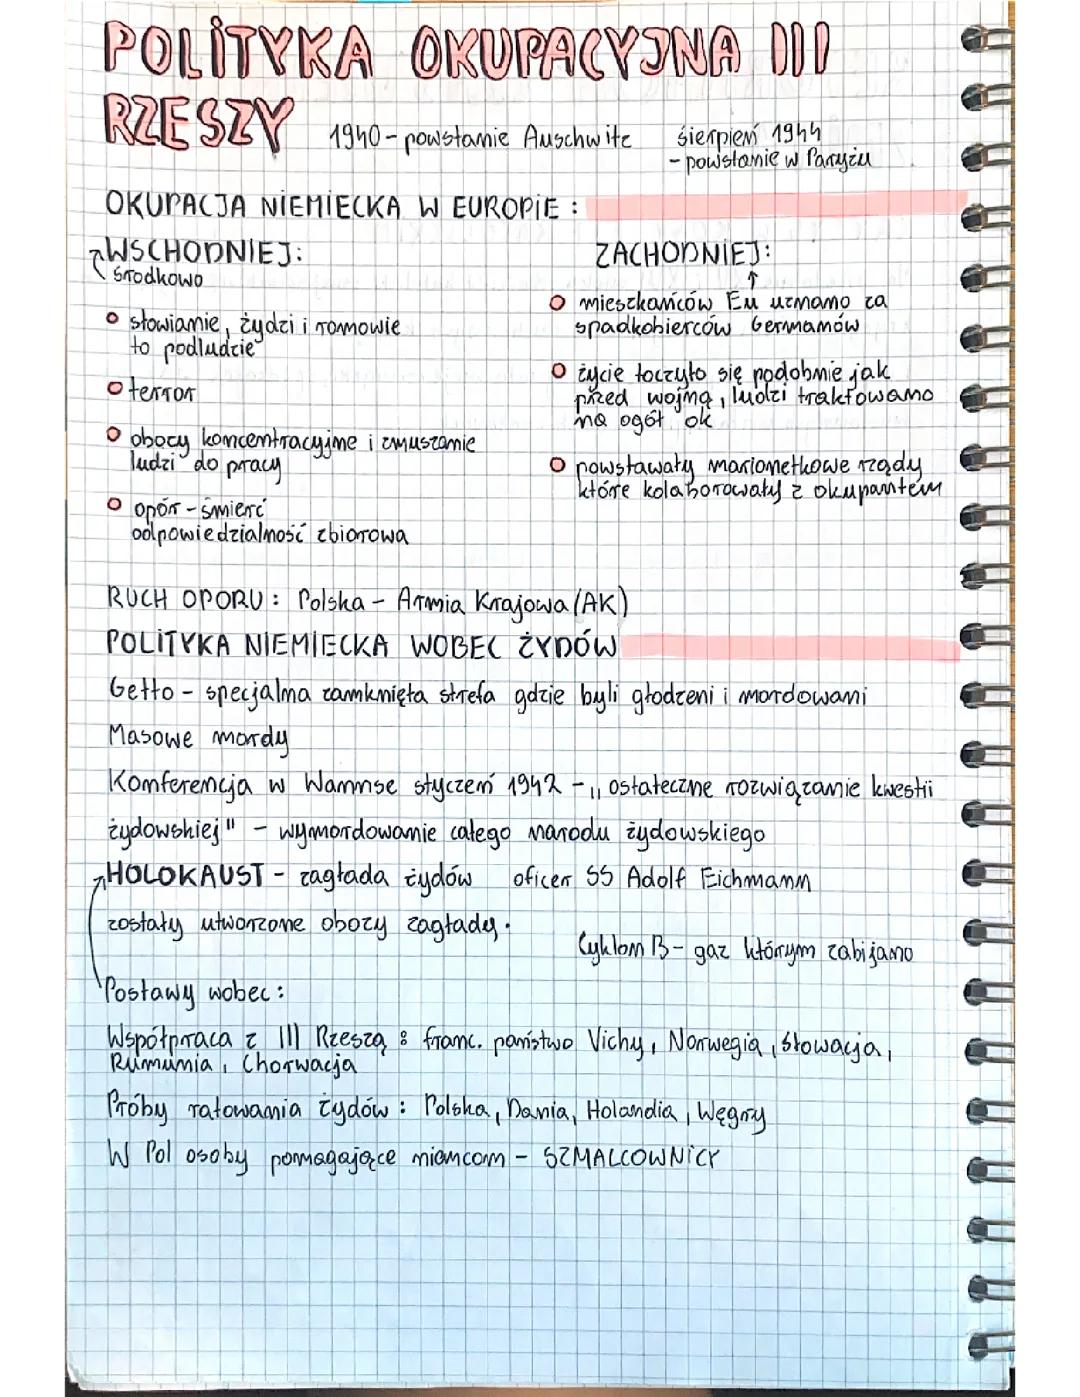 POLITYKA OKUPACYJNA III
RZESZY
1940 - powstanie Auschwitz
sierpień 1944
- powstanie w Paryżu
OKUPACJA NIEMIECKA W EUROPIE :
WSCHODNIEJ:
środkowo
słowianie, żydzi i romowie
to podludzie
terror
obozy koncentracyjne i zmuszanie
ludzi do pracy
opór - śmierć
odpowiedzialność zbiorowa
ZACHODNIEJ:
mieszkańców Eu uznano za
spadkobierców Germanów
życie toczyło się podobnie jak
przed wojną, ludzi traktowano
na ogół ok
powstawały marionetkowe rządy
które kolaborowały z okupantem
RUCH OPORU : Polska - Armia Krajowa (AK)
POLITYKA NIEMIECKA WOBEC ŻYDÓW
Getto - specjalna zamknięta strefa gdzie byli głodzeni i mordowani
Masowe mordy
Konferencja w Wannse styczeń 1942 - „ ostateczne rozwiązanie kwestii
żydowskiej" - wymordowanie całego narodu żydowskiego
HOLOKAUST - zagłada żydów oficer SS Adolf Eichmann
zostały utworzone obozy zagłady.
Cyklon B - gaz którym zabijano
Postawy wobec :
Współpraca z III Rzeszą : franc. państwo Vichy, Norwegia, Słowacja,
Rumunia, Chorwacja
Próby ratowania żydów : Polska, Dania, Holandia, Węgry
W Pol osoby pomagające niemcom - SZMALCOWNICY